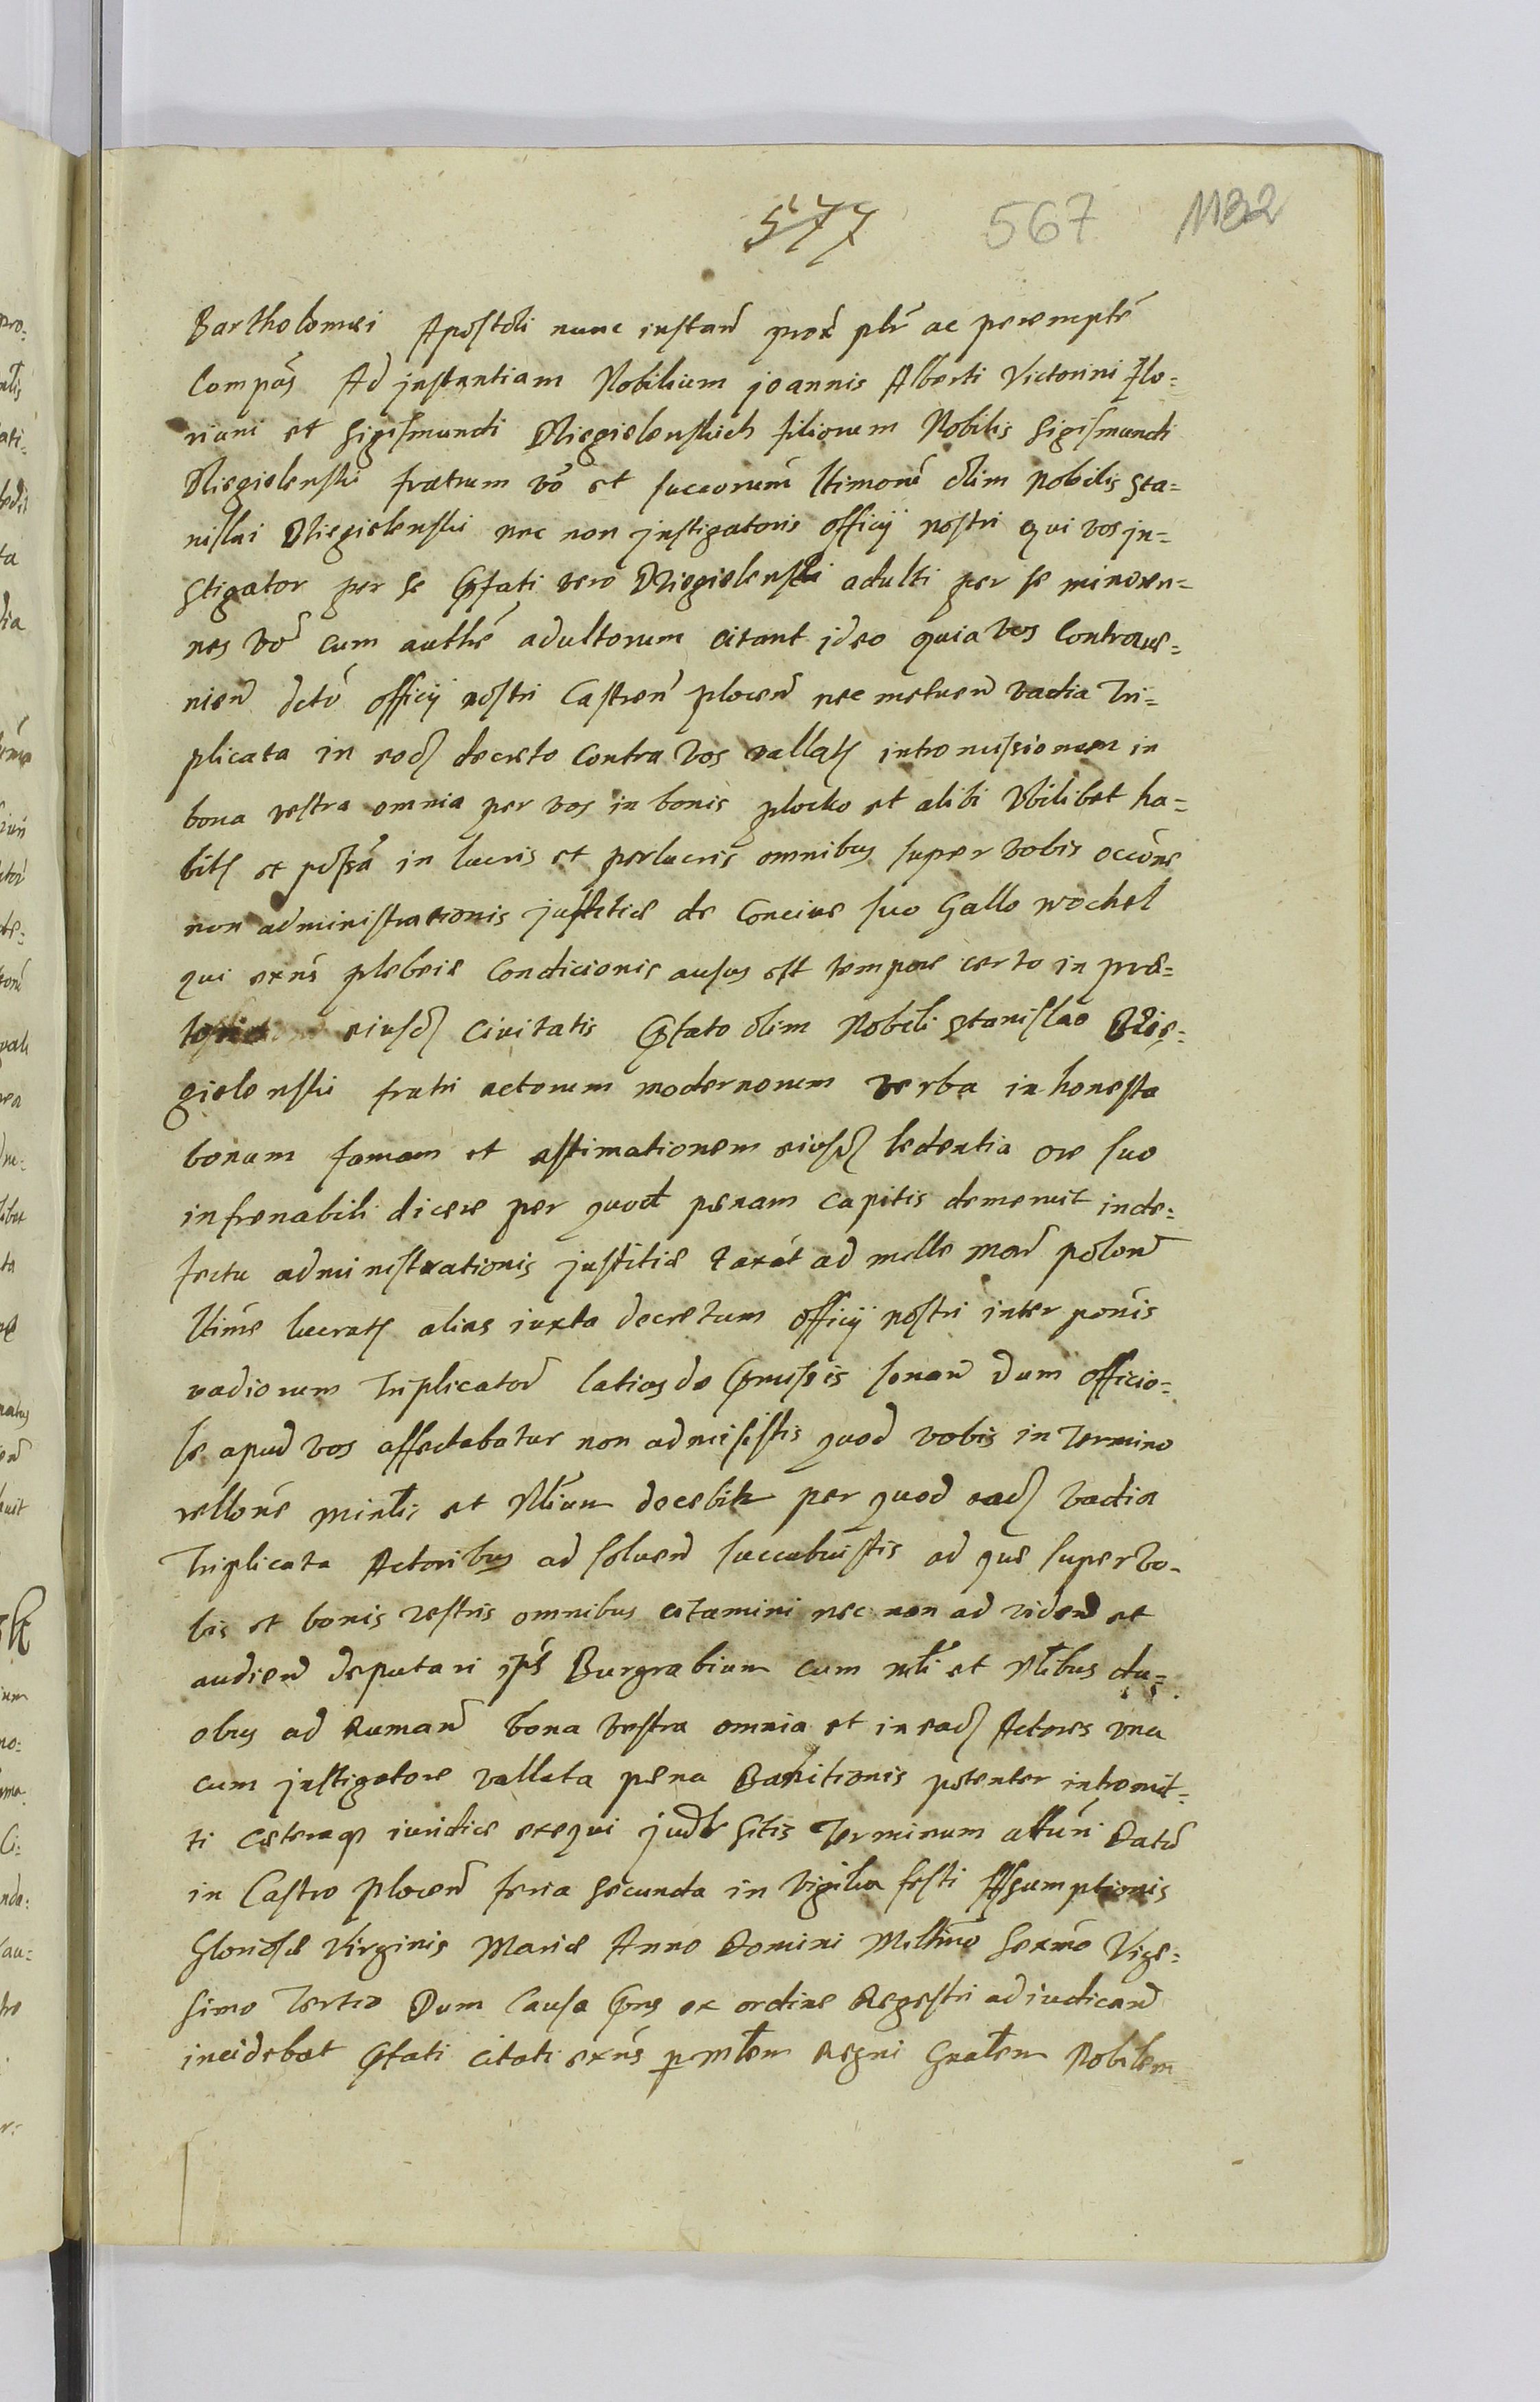 577 567 1132
Bartholomei Apostoli nunc instan̄ prox̄ pl̄r ac peremptē
Compās Ad jnstantiam Nobilium joannis Alberti Victorini Flo=
riani et Sigismundi Dliegielenskich filiorum Nobilis Sigismundi
Dliegielenski fratrum vō et succorum̄ ltimorū olim Nobilis Sta=
nislai Dliegielenski nec non jnstigatoris officij nostri qui vos jn=
stigator per se Pfati vero Dliegielenski adulti per se minoren=
nes vō cum authē adultorum citant ideo quia vos Contraue=
nien̄ dctō officij nostri Castren̄ plocen̄ nec metuen̄ vadia tri=
plicata in eod decreto Contra vos vallatȝ intromissionem in
bona vestra omnia per vos in bonis plocko et alibi vbilibet ha=
bitȝ et possā in lucris et perlucris omnibus super vobis occōne
non administrationis justitiæ de Conciue suo Gallo wochel
qui exn̄s plebeiæ Condicionis ausus est tempore certo in præ=
torio eiusd Ciuitatis Pfato olim Nobili Stanislao Dlie=
gielenski fratri actorum modernorum verba inhonesta
bonam famam et æstimationem eiusd ledentia ore suo
infrenabili dicere per quod pænam capitis demeruit in de=
fectu administrationis justitiæ taxāt ad mille mar̄ polon̄
ltimē lucratȝ alias iuxta decretum officij nostri inter ponīs
vadiorum triplicator̄ latius de Pmissis sonan̄ dum officio=
se apud vos affectabatur non admisistis quod vobis in termino
rellōne minl̄is et Nl̄ium docebitr per quod ead vadia
Triplicata Actoribus ad soluen̄ succubuistis ad quæ super vo=
bis et bonis vestris omnibus citamini nec non ad viden̄ et
audien̄ deputari ip̄s Burgrabium cum ml̄i et Nl̄ibus du=
obus ad Ruman̄ bona vestra omnia et in ead Actores vna
cum jnstigatore vallata pæna Banitionis potenter intromit=
ti cæteraqȝ iuridice exequi judr Sitis Terminum attūri Datū
in Castro plocen̄ feria secunda in vigilia festi Assumptionis
Gloriosæ Virginis Mariæ Anno Domini Millimo Sexmo Vige=
simo Tertio Dum Causa Pns ex ordine Regestri adiudican̄
incidebat Pfati Citati exn̄s p ml̄em Regni Gnałem Nobilem